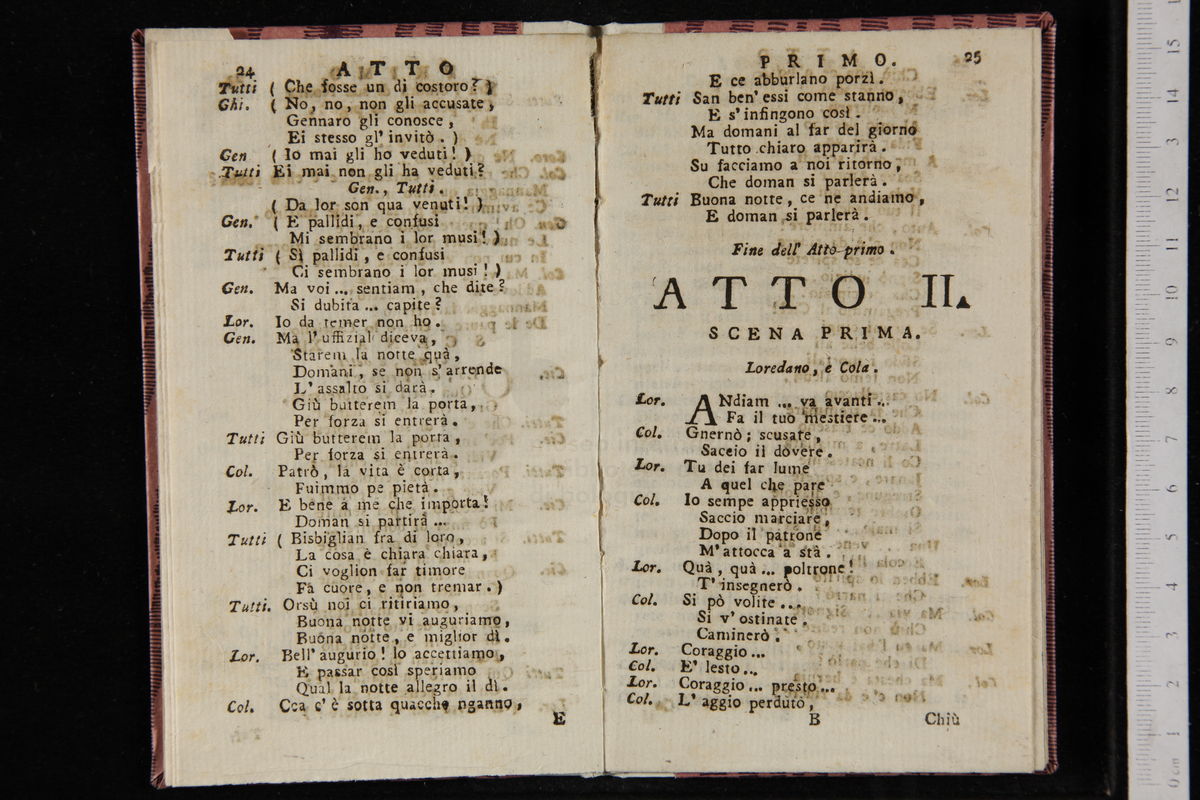 24 ATTO
Tutti ( Che fosse un di costoro? )
Ghi. ( No, no, non gli accusate,
Gennaro gli conosce,
Ei stesso gl' invitò. )
Gen ( Io mai gli ho veduti! )
Tutti Ei mai non gli ha veduti?
Gen., Tutti.
( Da lor son qua venuti! )
Gen. ( E pallidi, e confusi
Mi sembrano i lor musi! )
Tutti ( Sì pallidi, e confusi
Ci sembrano i lor musi! )
Gen. Ma voi ... sentiam, che dite?
Si dubita ... capite?
Lor. Io da temer non ho.
Gen. Ma l' uffizial diceva,
Starem la notte quà,
Domani, se non s' arrende
L' assalto si darà.
Giù butterem la porta,
Per forza si entrerà.
Tutti Giù butterem la porta,
Per forza si entrerà.
Col. Patrò, la vita è corta,
Fuimmo pe pietà.
Lor. E bene a me che importa!
Doman si partirà ...
Tutti ( Bisbiglian fra di loro,
La cosa è chiara chiara,
Ci voglion far timore
Fa cuore, e non tremar. )
Tutti. Orsù noi ci ritiriamo,
Buona notte vi auguriamo,
Buona notte, e miglior dì.
Lor. Bell' augurio! Io accettiamo,
E passar così speriamo
Qual la notte allegro il dì.
Col. Cca c' è sotta quacche nganno,
E
PRIMO. 25
E ce abburlano porzì.
Tutti San ben' essi come stanno,
E s' infingono così.
Ma domani al far del giorno
Tutto chiaro apparirà.
Su facciamo a noi ritorno,
Che doman si parlerà.
Tutti Buona notte, ce ne andiamo,
E doman si parlerà.
Fine dell' Atto primo.
ATTO II.
SCENA PRIMA.
Loredano, e Cola.
Lor. ANdiam ... va avanti ...
Fa il tuo mestiere ...
Col. Gnernò; scusate,
Saccio il dovere.
Lor. Tu dei far lume
A quel che pare
Col. Io sempe appriesso
Saccio marciare,
Dopo il patrone
M' attocca a stà.
Lor. Quà, quà ... poltrone!
T' insegnerò.
Col. Si pò volite ...
Si v' ostinate.
Caminerò.
Lor. Coraggio ...
Col. E' lesto ...
Lor. Coraggio ... presto ...
Col. L' aggio perduto,
B Chiù